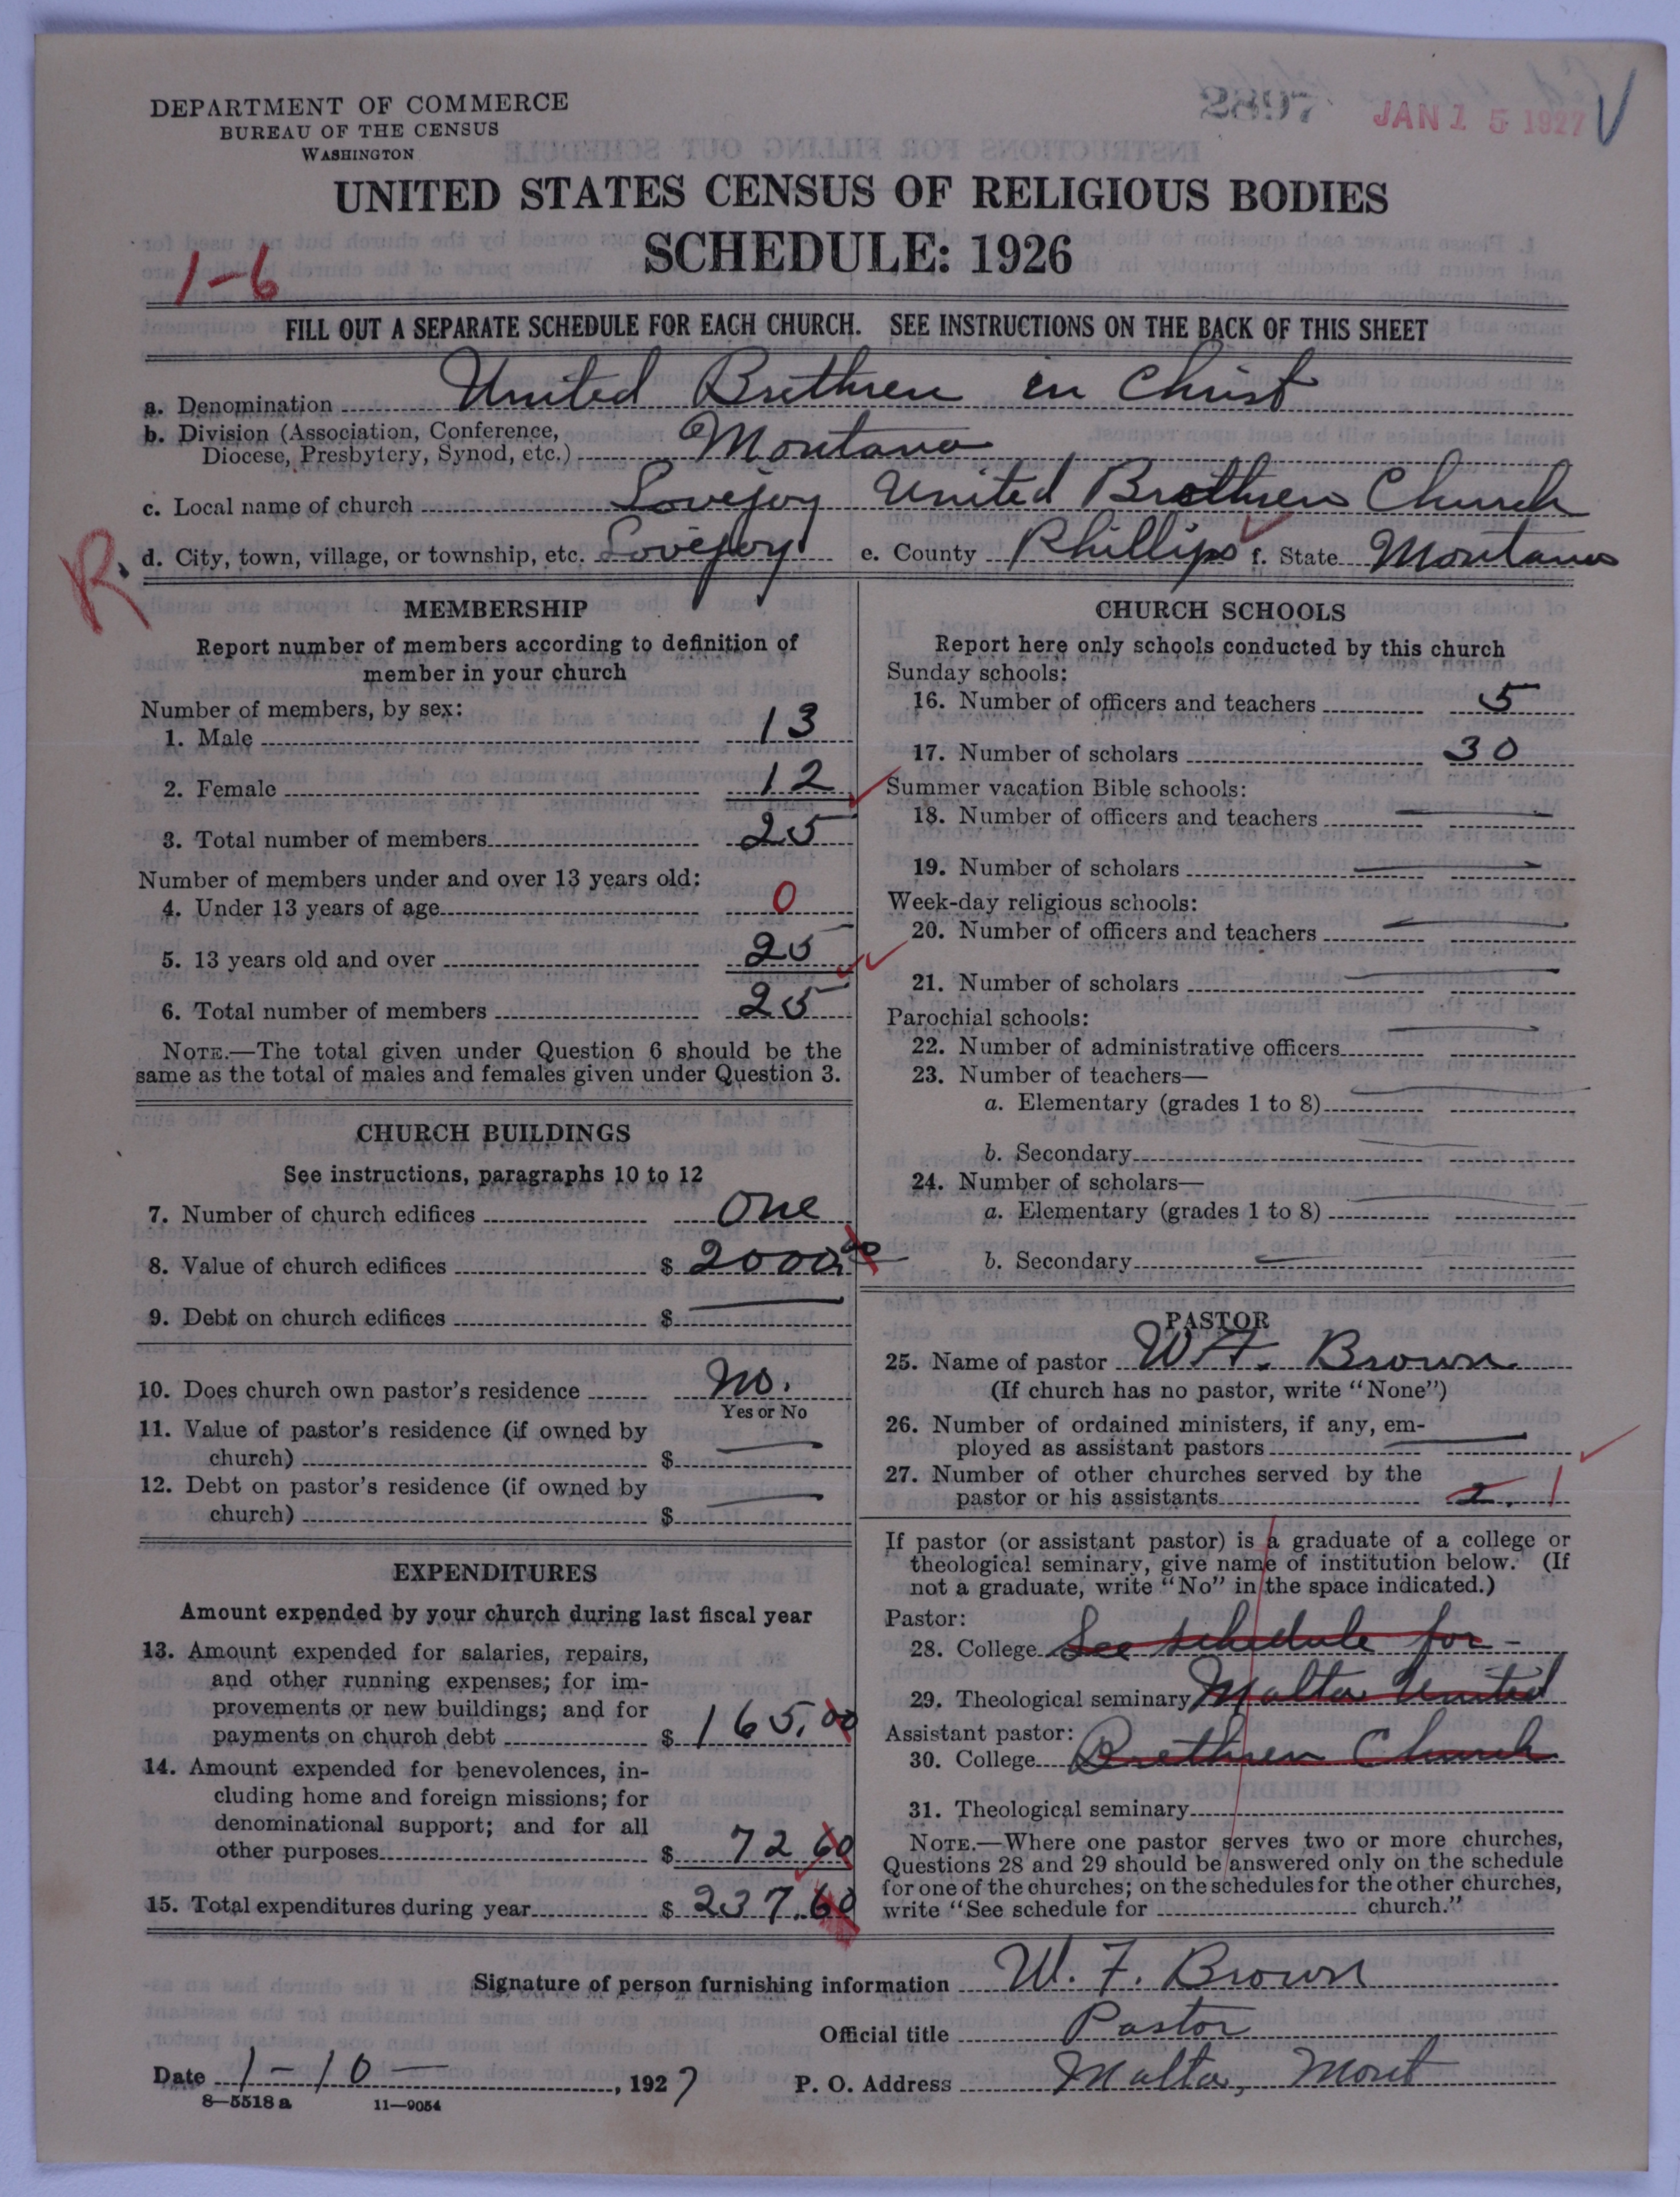 DEPARTMENT OF COMMERCE
BUREAU OF THE CENSUS
WASHINGTON
JAN 15 1927
UNITED STATES CENSUS OF RELIGIOUS BODIES
SCHEDULE: 1926
1-6
FILL OUT A SEPARATE SCHEDULE FOR EACH CHURCH. SEE INSTRUCTIONS ON THE BACK OF THIS SHEET
a. Denomination United Brethren in Christ
b. Division (Association, Conference,
Diocese, Presbytery, Synod, etc.) Montana
c. Local name of church Lovejoy United Brethren Church
R. d. City, town, village, or township, etc. Lovejoy e. County Phillips f. State Montana
MEMBERSHIP
Report number of members according to definition of
member in your church
Number of members, by sex:
1. Male 13
2. Female 12
3. Total number of members 25
Number of members under and over 13 years old:
4. Under 13 years of age 0
5. 13 years old and over 25
6. Total number of members 25
NOTE.—The total given under Question 6 should be the
same as the total of males and females given under Question 3.
CHURCH BUILDINGS
See instructions, paragraphs 10 to 12
7. Number of church edifices One
8. Value of church edifices $ 2000.00
9. Debt on church edifices $ —
10. Does church own pastor's residence No.
Yes or No
11. Value of pastor's residence (if owned by
church) $ —
12. Debt on pastor's residence (if owned by
church) $ —
EXPENDITURES
Amount expended by your church during last fiscal year
13. Amount expended for salaries, repairs,
and other running expenses; for im-
provements or new buildings; and for
payments on church debt $ 165.00
14. Amount expended for benevolences, in-
cluding home and foreign missions; for
denominational support; and for all
other purposes $ 72 60
15. Total expenditures during year $ 237.60
CHURCH SCHOOLS
Report here only schools conducted by this church
Sunday schools:
16. Number of officers and teachers 5
17. Number of scholars 30
Summer vacation Bible schools:
18. Number of officers and teachers —
19. Number of scholars —
Week-day religious schools:
20. Number of officers and teachers —
21. Number of scholars —
Parochial schools:
22. Number of administrative officers —
23. Number of teachers—
a. Elementary (grades 1 to 8) —
b. Secondary —
24. Number of scholars—
a. Elementary (grades 1 to 8) —
b. Secondary —
PASTOR
25. Name of pastor W. F. Brown
(If church has no pastor, write "None")
26. Number of ordained ministers, if any, em-
ployed as assistant pastors —
27. Number of other churches served by the
pastor or his assistants 2. 1
If pastor (or assistant pastor) is a graduate of a college or
theological seminary, give name of institution below. (If
not a graduate, write "No" in the space indicated.)
Pastor:
28. College See schedule for -
29. Theological seminary Malta United
Assistant pastor:
30. College Brethren Church
31. Theological seminary
NOTE.—Where one pastor serves two or more churches,
Questions 28 and 29 should be answered only on the schedule
for one of the churches; on the schedules for the other churches,
write "See schedule for church."
Signature of person furnishing information W. F. Brown
Official title Pastor
Date 1-10-, 1927 P. O. Address Malta, Mont
8-5518 a 11-9054